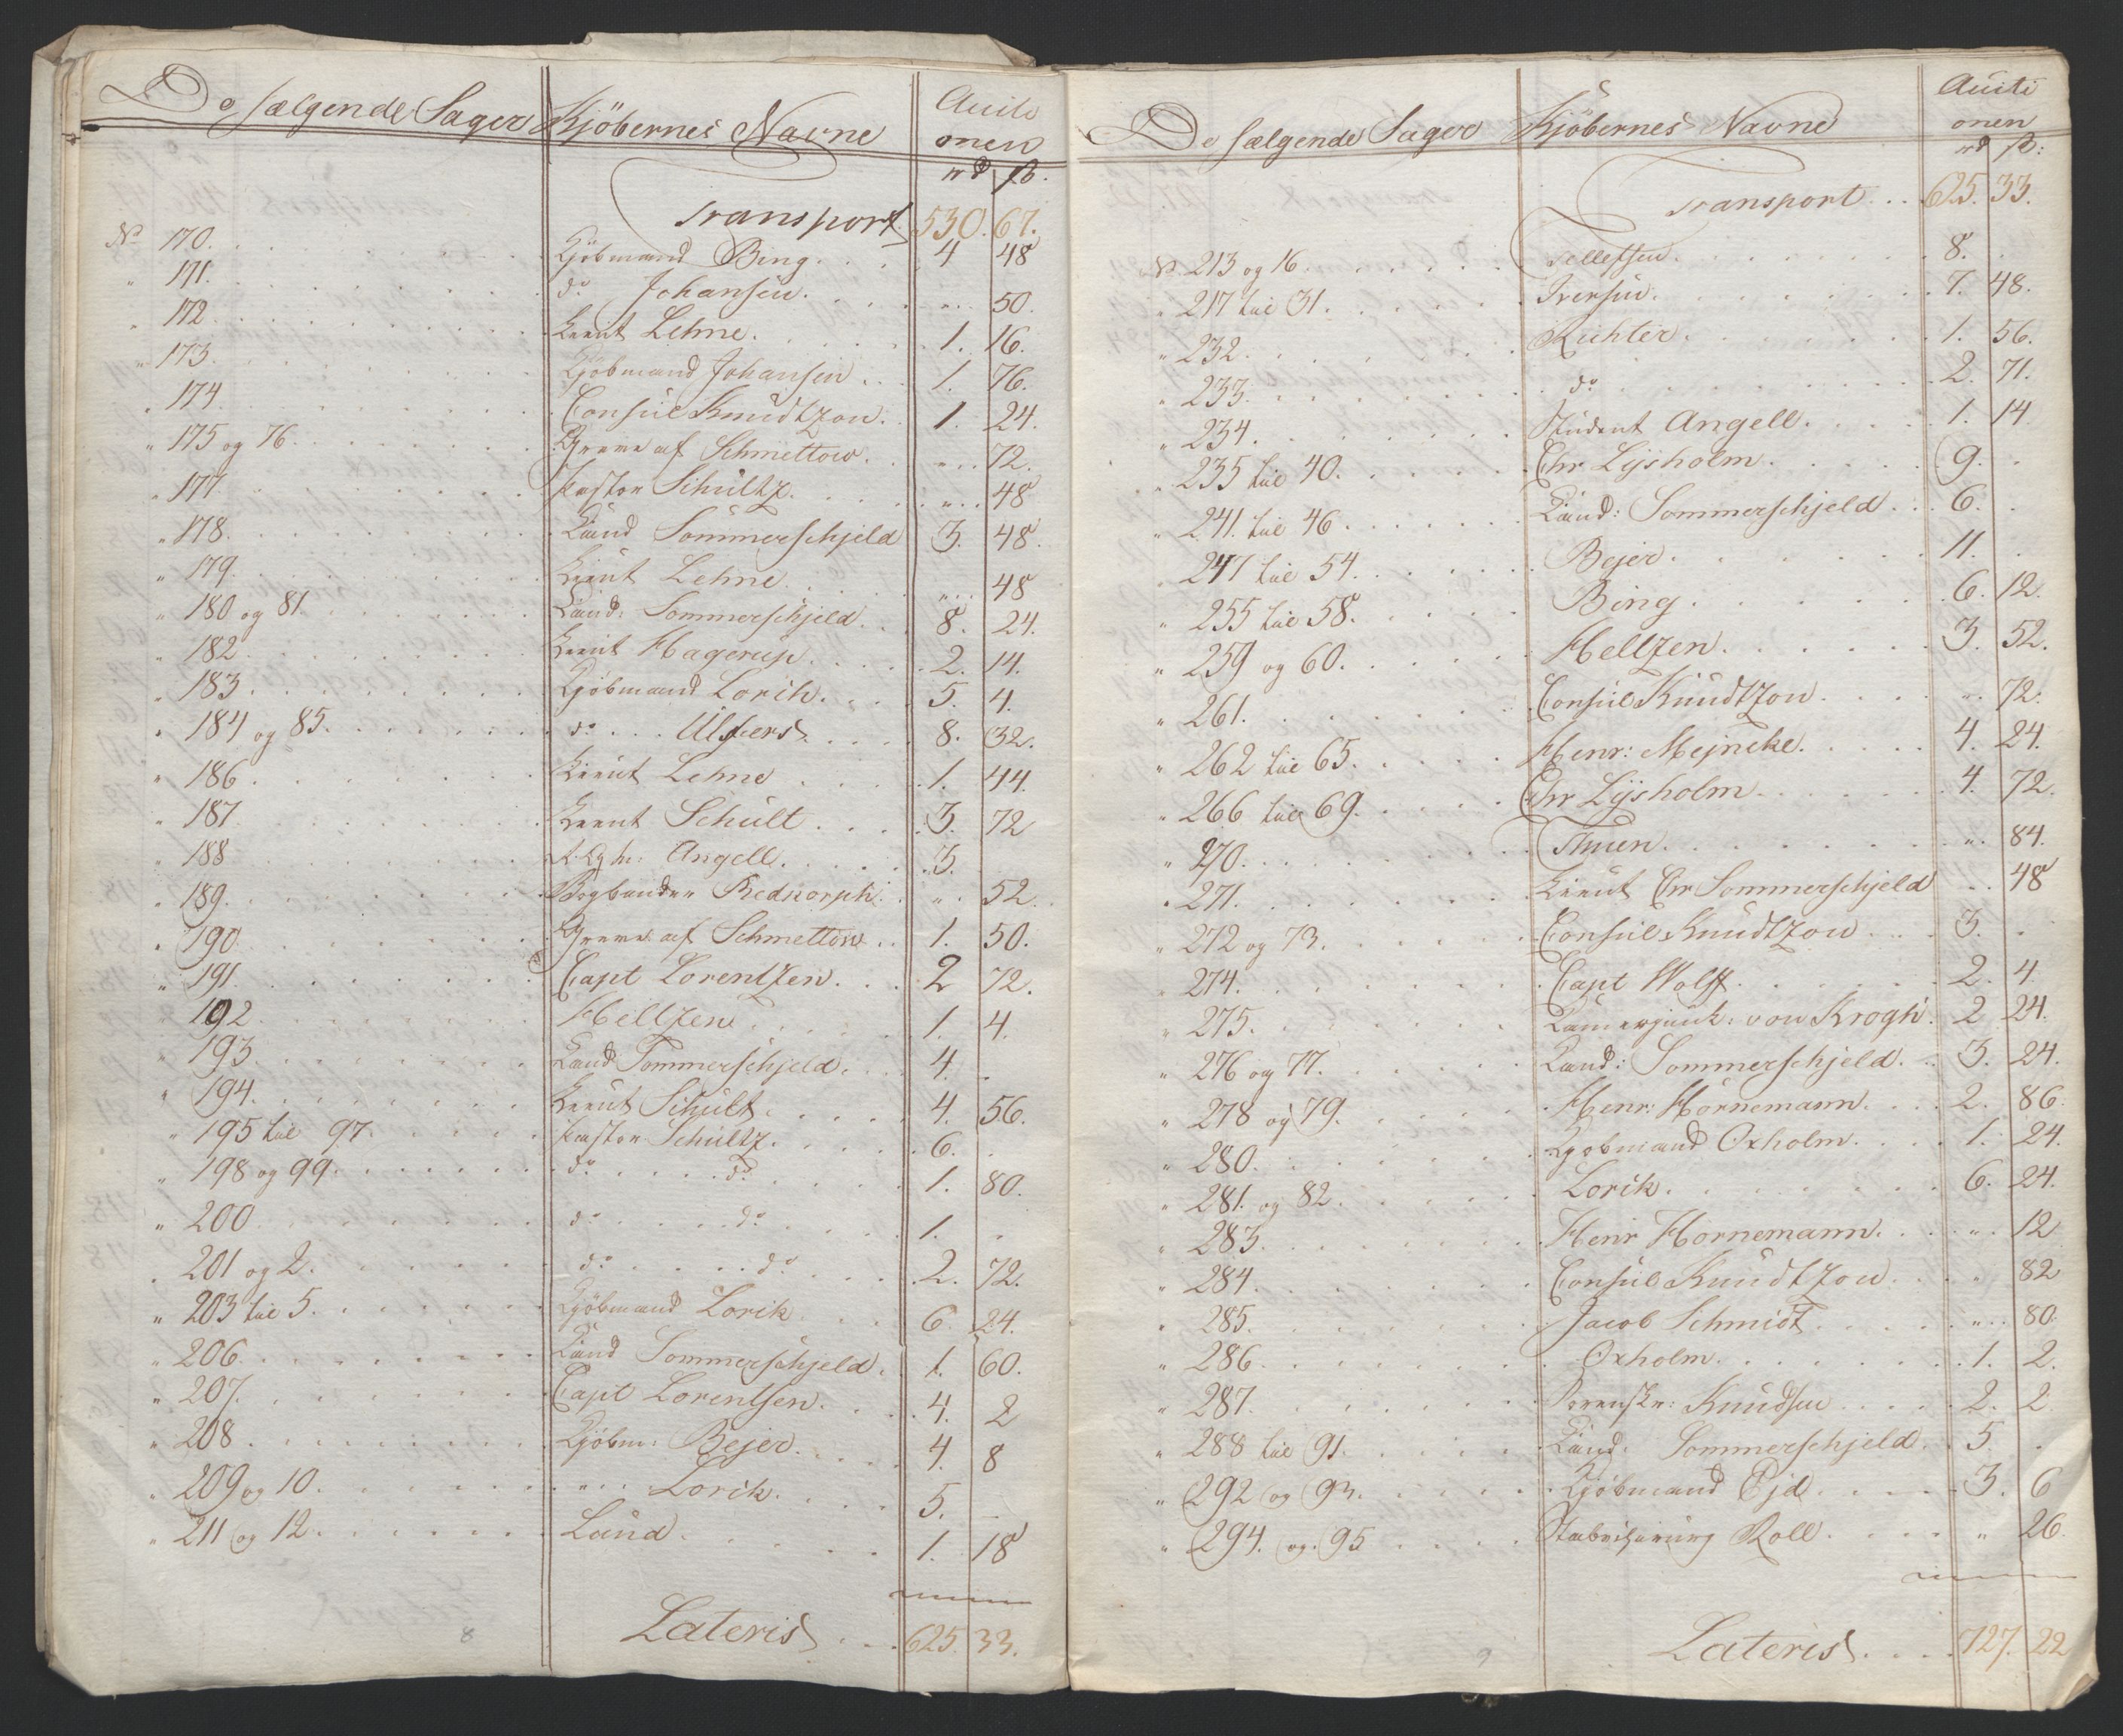 De sælgende Sager Kjöbernes Navne Aucti
onen
rd ß.
Transport 530. 67.
No 170. Kjöbmand Bing. 4 48
" 171. do Johansen. " 50.
" 172 Lieut Lehne. 1. 16.
" 173. Kjöbmand Johansen 1. 76.
" 174. Consul Knudtzon. 1. 24.
" 175 og 76. Greve af Schmettow. " 72.
" 177 Pastor Schultz. " 48
" 178. Cand Sommerschjeld 3. 48.
" 179. Lieut Lehne " 48
" 180 og 81. Cand: Sommerschjeld. 8. 24.
" 182 Lieut Hagerup. 2. 14.
" 183. Kjöbmand Lorik. 5. 4.
" 184 og 85. do Ulfers 8. 32.
" 186. Lieut Lehne 1. 44.
" 187. Lieut Schult 3. 72
" 188 Angell. 3.
" 189. Bogbinder Rednorph. " 52.
" 190. Greve af Schmettow 1. 50.
" 191. Capt Lorentzen. 2 72.
" 192. Helltzen 1. 4.
" 193. Cand Sommerschjeld. 4. .
" 194. Lieut Schult 4. 56.
" 195 til 97. Pastor Schultz. 6. .
" 198 og 99. do do 1. 80.
" 200. do do 1. .
" 201 og 2. do do 2. 72.
" 203 til 5. Kjöbmand Lorik 6. 24.
" 206. Cand Sommerschjeld. 1. 60.
" 207. Capt Lorentsen. 4. 2
" 208 Kjöbm: Bejer. 4. 8
" 209 og 10. " Lorik. 5. -
" 211 og 12. Lund. 1. 18
Lateris 625. 33.
8
De sælgende Sager Kjöbernes Navne Aucti
onen
rd ß:
Transport 625. 33.
No 213 og 16. Tellefsen. 8. .
" 217 til 31. Iversen. 7. 48.
" 232. Richter. 1. 56.
" 233. do 2. 71.
" 234. Student Angell. 1. 14
" 235 til 40. Chr Lysholm. 9. .
" 241. til 46. Cand: Sommerschjeld 6. .
" 247 til 54. Bejer. 11. .
" 255 til 58. Bing. 6. 12.
" 259 og 60. Helltzen. 3. 52.
" 261. Consul Knudtzon. " 72.
" 262 til 65. Henr: Mejncke. 4. 24.
" 266 til 69. Chr Lysholm 4. 72.
" 270. Thuen. " 84.
" 271. Lieut Chr Sommerschjeld " 48
" 272 og 73. Consul Knudtzon 3. .
" 274. Capt Wolff. 2. 4.
" 275. Camerjunk: von Krogh. 2 24.
" 276 og 77. Cand: Sommerschjeld. 3. 24.
" 278 og 79. Henr: Hornemann. 2. 86.
" 280. Kjöbmand Oxholm. 1. 24.
" 281. og 82. Lorik. 6. 24.
" 283. Henr Hornemann. " 12
" 284. Consul Knudtzon " 82
" 285. Jacob Schmidt " 80.
" 286. Oxholm. 1. 2.
" 287. Knudsen 2. 2.
" 288 til 91. Cand. Sommerschjeld. 5. .
" 292 og 93. Kjöbmand Ejd. 3. 6
" 294. og 95 Roll. " 26.
Lateris 727. 22
9